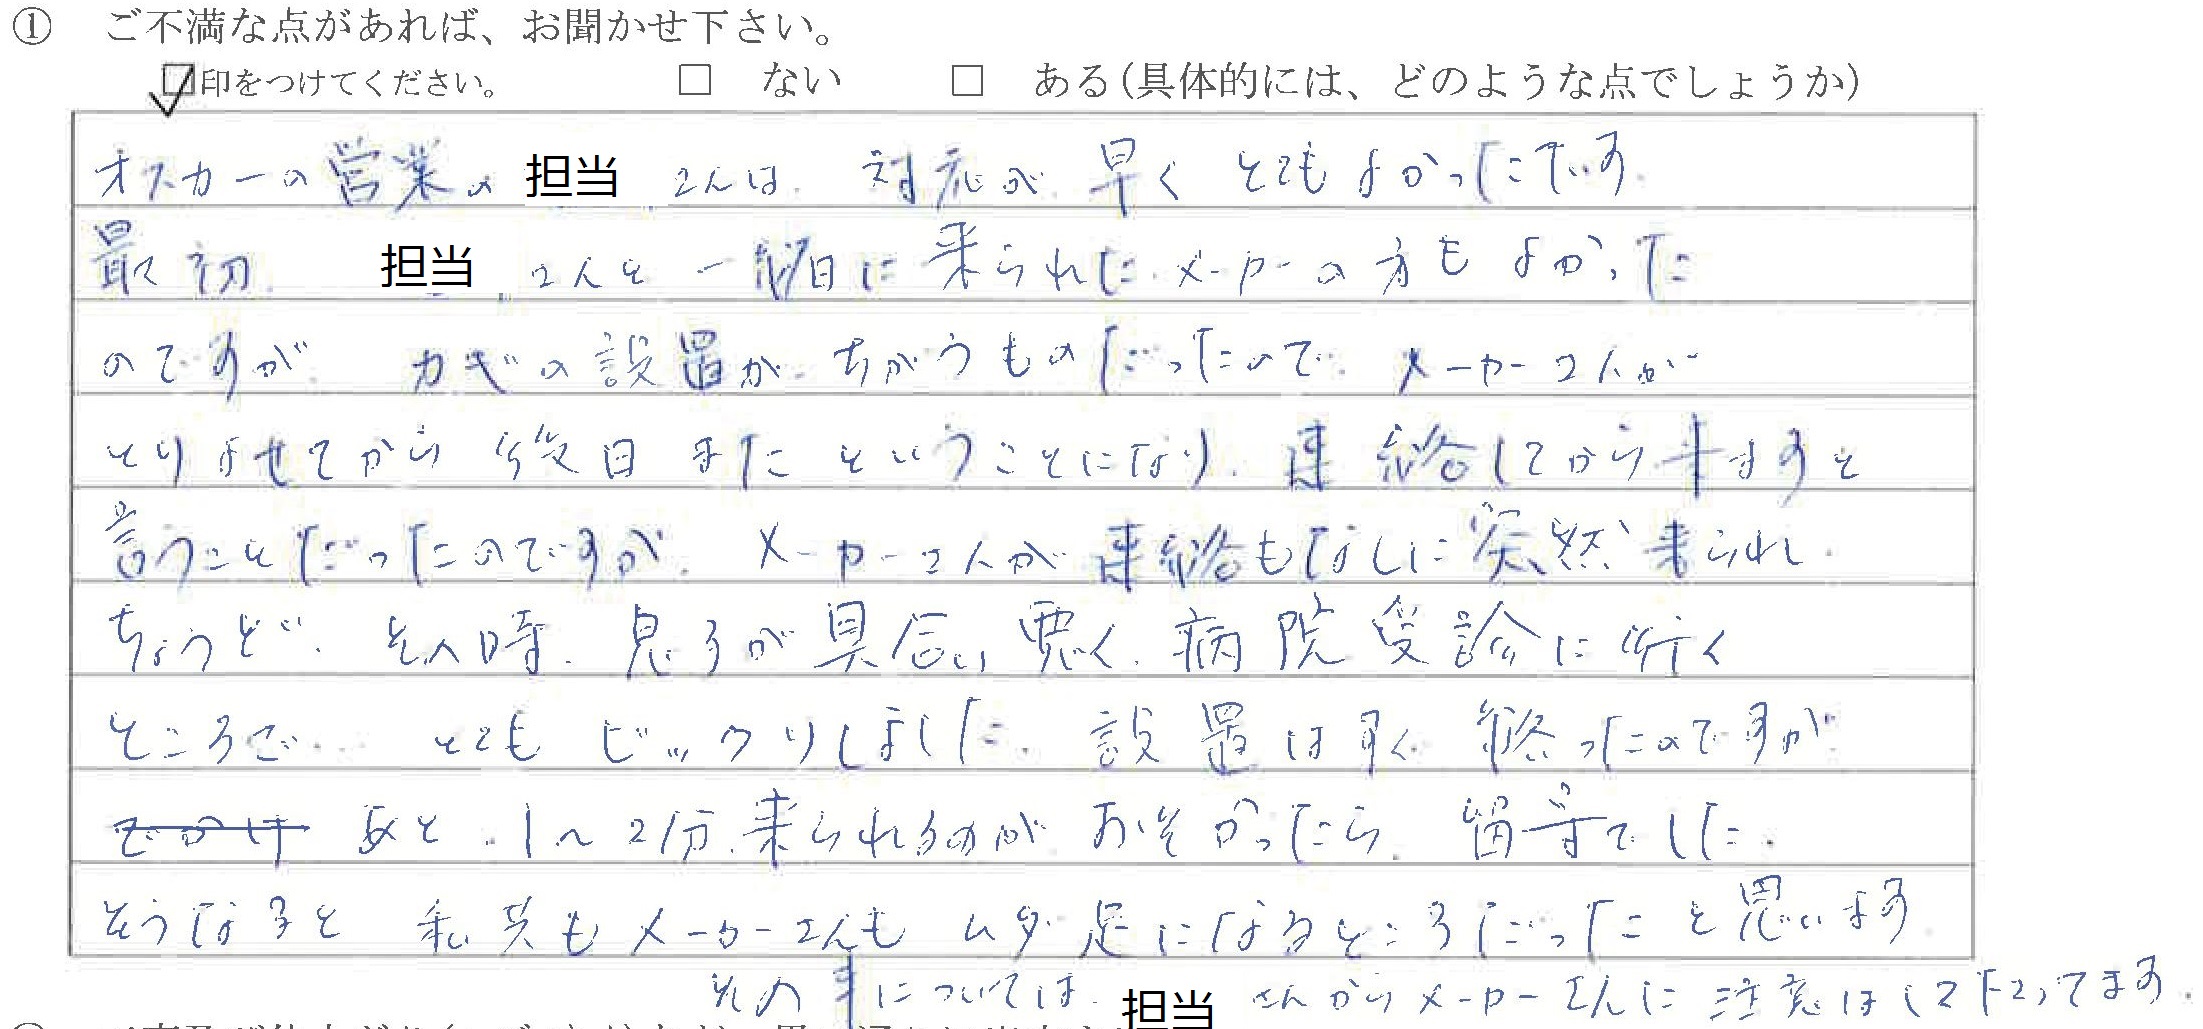 ① ご不満な点があれば、お聞かせ下さい。
☑印をつけてください。 □ ない □ ある(具体的には、どのような点でしょうか)
オスカーの営業の 担当 さんは、対応が 早く とてもよかったです。
最初、担当 さんと 一緒に 来られた メーカーの方も よかった
のですが、カギの設置が ちがうものだったので、メーカーさんが
とりよせてから 後日 また ということになり、連絡してから来ますと
言うことだったのですが、メーカーさんが 連絡もなしに 突然 来られ、
ちょうど、その時、息子が具合い悪く、病院受診に行く
ところで、とても ビックリしました。設置は早く 終ったのですが
あと、1~2分、来られるのが おそかったら、留守でした。
そうなると 私共も メーカーさんも ムダ足になるところだったと思います
その事については、担当 さんからメーカーさんに 注意はして下さってます。